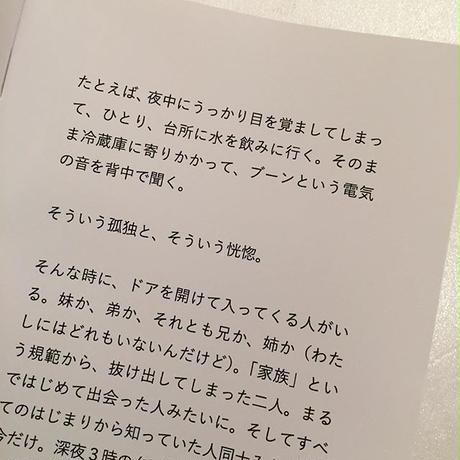 たとえば、夜中にうっかり目を覚ましてしまっ
て、ひとり、台所に水を飲みに行く。そのま
ま冷蔵庫に寄りかかって、ブーンという電気
の音を背中で聞く。
そういう孤独と、そういう恍惚。
そんな時に、ドアを開けて入ってくる人がい
る。妹か、弟か、それとも兄か、姉か（わた
しにはどれもいないんだけど）。「家族」とい
う規範から、抜け出してしまった二人。まる
ではじめて出会った人みたいに。そしてすべ
てのはじまりから知っていた人同士み
今だけ。深夜３時の